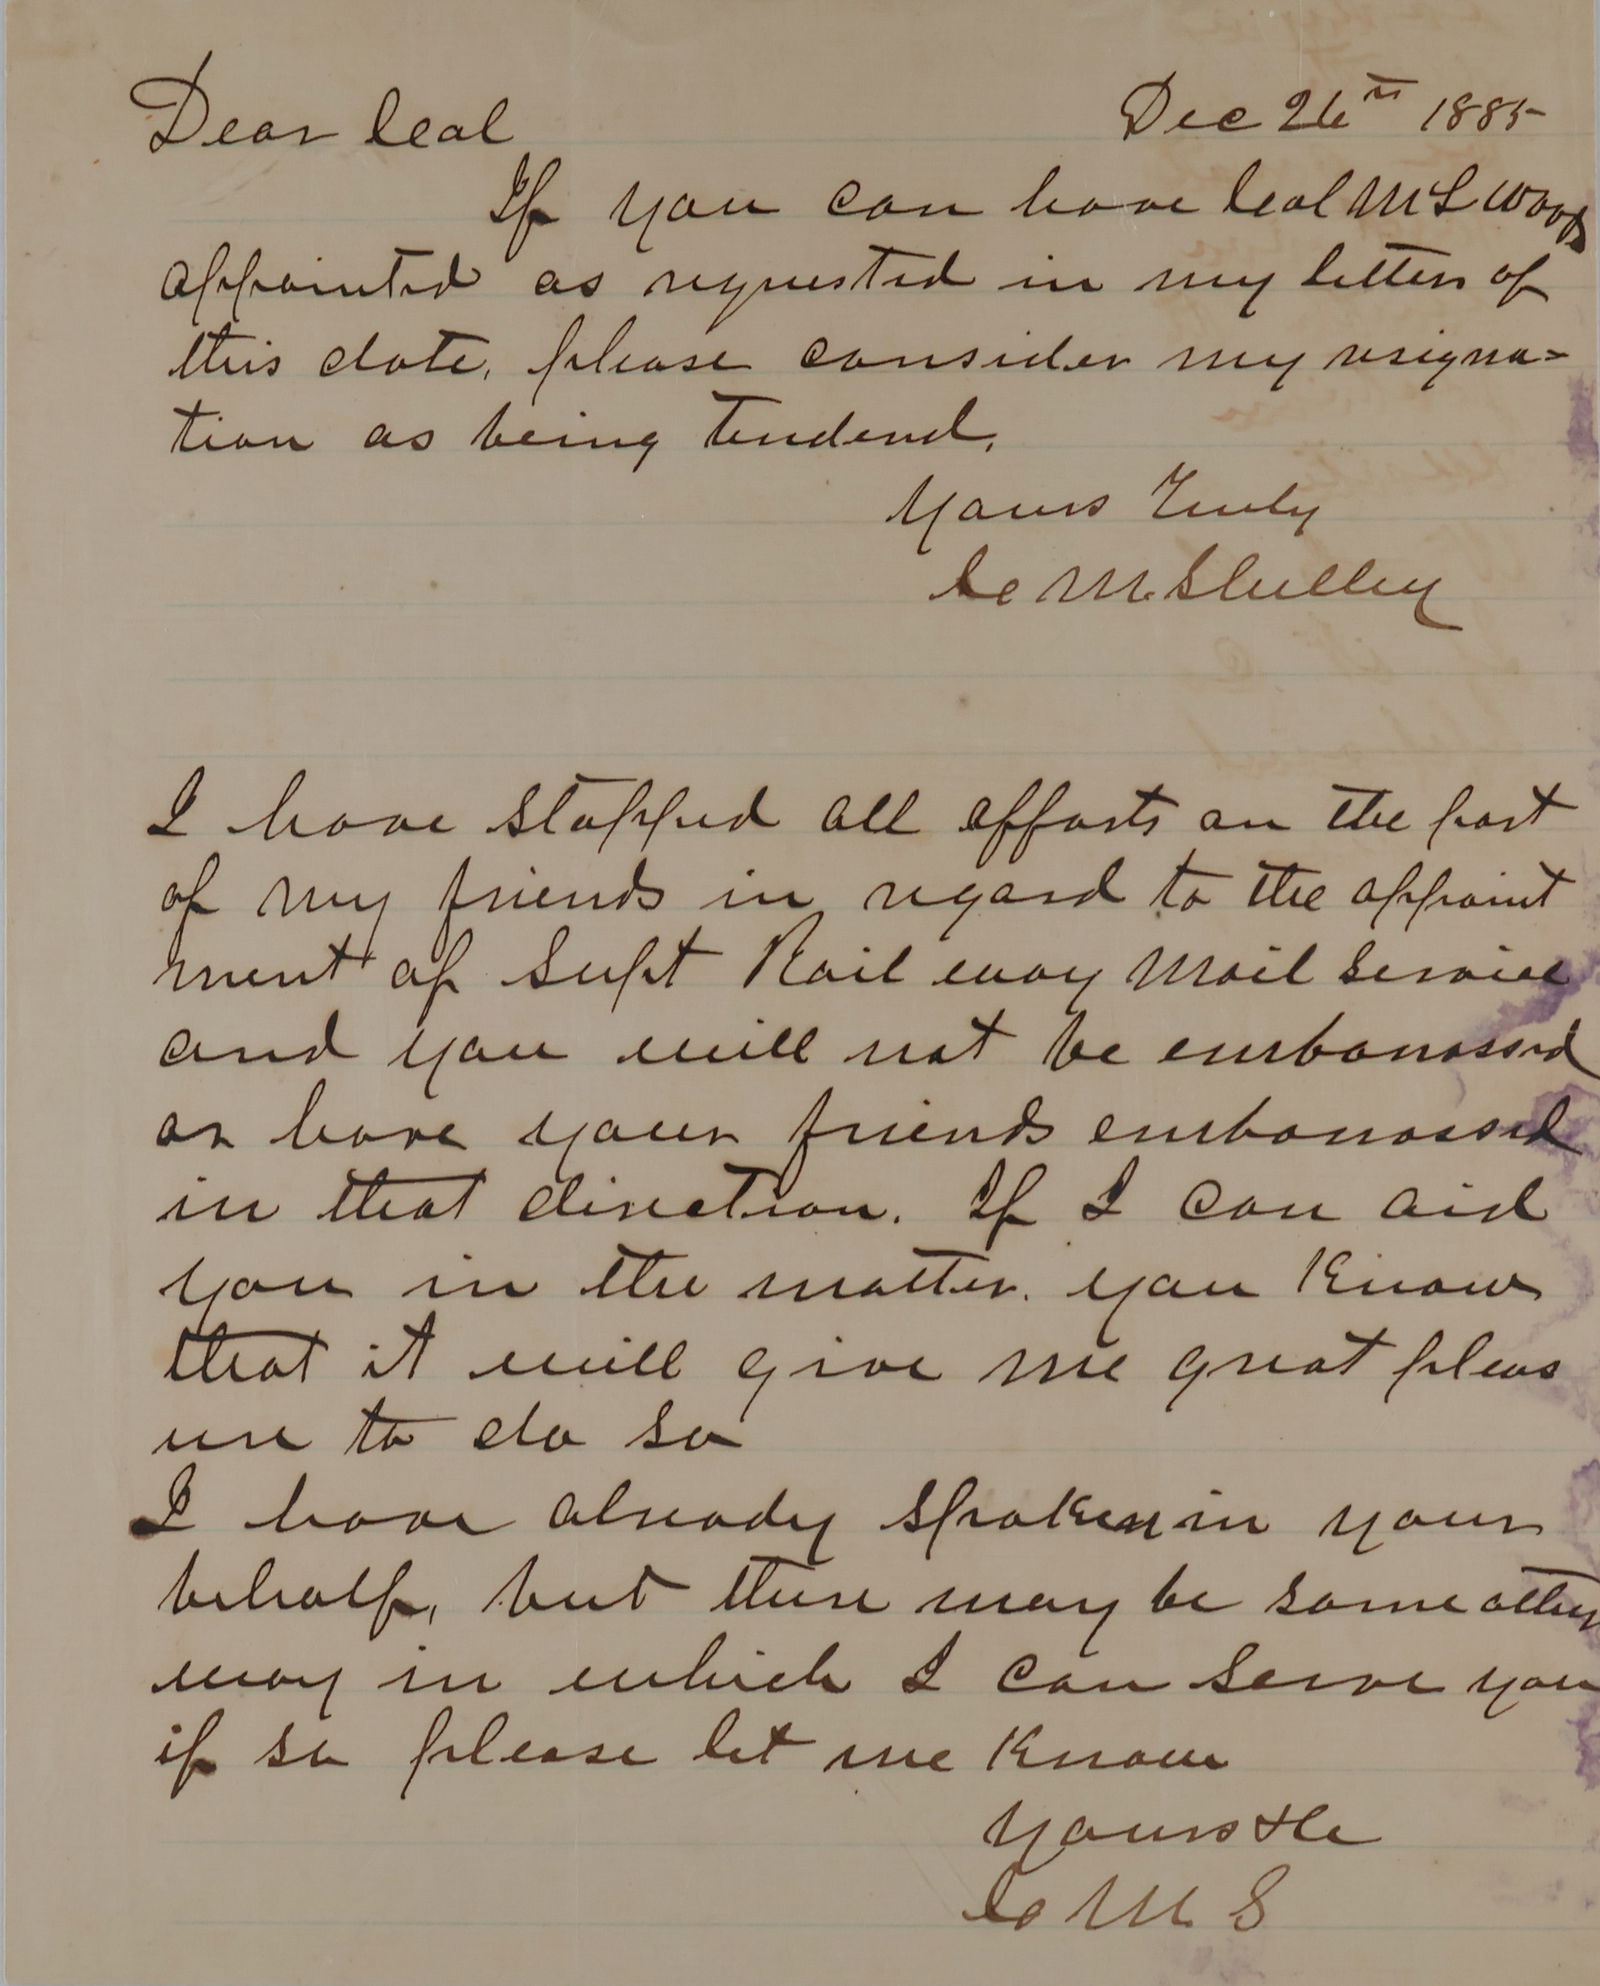 Dear Col
Dec 26th 1885
If you can have Col M L Woods
appointed as requested in my letter of
this date, please consider my resigna=
tion as being tenderd.
Yours Truly
C M Shelley
I have stopped all efforts on the part
of my friends in regard to the appoint
ment of Supt Rail way Mail Service
and you will not be embarrassed
or have your friends embarrassed
in that direction. If I can aid
you in the matter. you Know
that it will give me great pleas
ure to do so
I have already spoken in your
behalf, but there may be some other
way in which I can serve you
if so please let me Know
Yours &c
C M S